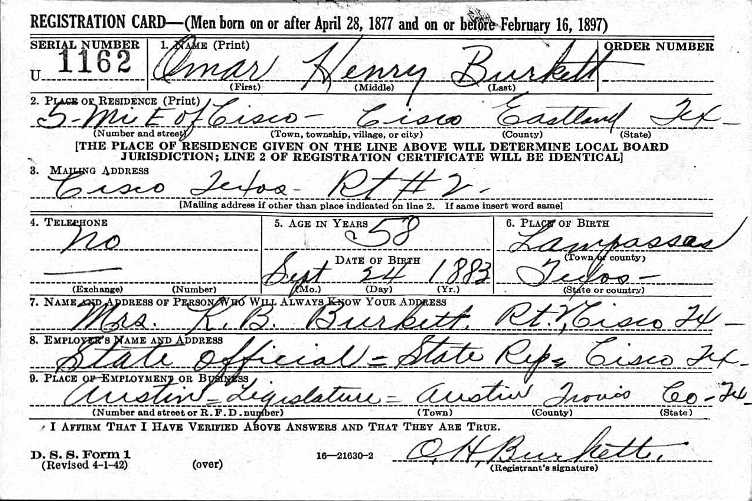 REGISTRATION CARD—(Men born on or after April 28, 1877 and on or before February 16, 1897)
SERIAL NUMBER 1. NAME (Print) ORDER NUMBER
U 1162 Omar Henry Burkett
(First) (Middle) (Last)
2. PLACE OF RESIDENCE (Print)
5-Mi E of Cisco - Cisco Eastland Tex-
(Number and street) (Town, township, village, or city) (County) (State)
[THE PLACE OF RESIDENCE GIVEN ON THE LINE ABOVE WILL DETERMINE LOCAL BOARD
JURISDICTION; LINE 2 OF REGISTRATION CERTIFICATE WILL BE IDENTICAL]
3. MAILING ADDRESS
Cisco Texas - Rt # 2 -
[Mailing address if other than place indicated on line 2. If same insert word same]
4. TELEPHONE 5. AGE IN YEARS 6. PLACE OF BIRTH
No 58 Lampassas
DATE OF BIRTH (Town or county)
— Sept 24 1883 Texas -
(Exchange) (Number) (Mo.) (Day) (Yr.) (State or country)
7. NAME AND ADDRESS OF PERSON WHO WILL ALWAYS KNOW YOUR ADDRESS
Mrs. K. B. Burkett, Rt. Cisco Tex -
8. EMPLOYER'S NAME AND ADDRESS
State official = State Rep = Cisco Tex -
9. PLACE OF EMPLOYMENT OR BUSINESS
Austin = Legislature = Austin Travis Co - Tex
(Number and street or R. F. D. number) (Town) (County) (State)
I AFFIRM THAT I HAVE VERIFIED ABOVE ANSWERS AND THAT THEY ARE TRUE.
D. S. S. Form 1
(Revised 4-1-42) (over) 16—21630-2 O. H. Burkett.
(Registrant's signature)